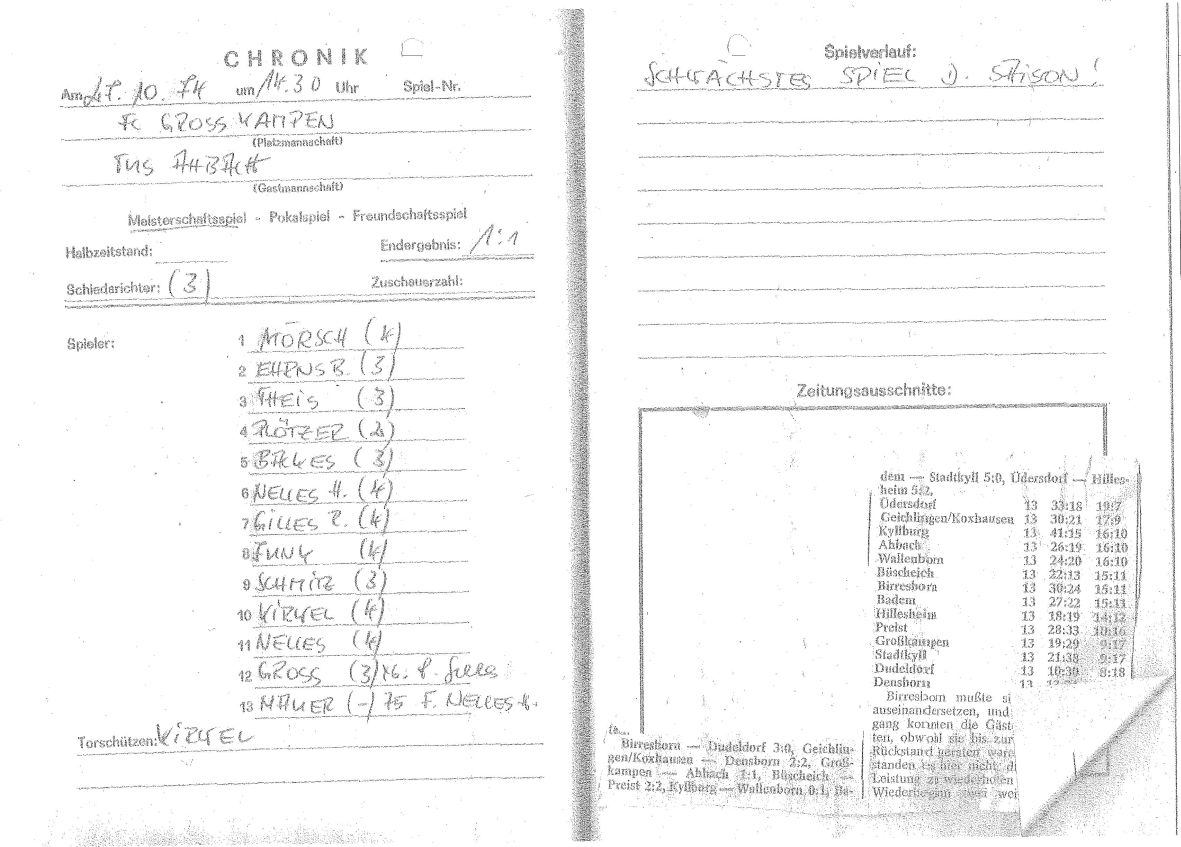 CHRONIK
Am 27. 10. 74 um 14.30 Uhr Spiel-Nr.
FC GROSSKAMPEN
(Platzmannschaft)
TUS AHBACH
(Gastmannschaft)
Meisterschaftsspiel - Pokalspiel - Freundschaftsspiel
Halbzeitstand: Endergebnis: 1:1
Schiedsrichter: (3) Zuschauerzahl:
Spieler:
1 MÖRSCH (4)
2 EHRNS B. (3)
3 THEIS (3)
4 PLÖTZER (2)
5 BACKES (3)
6 NELLES H. (4)
7 GILLES R. (4)
8 FUNK (4)
9 SCHMITZ (3)
10 KIRKEL (4)
11 NELLES (4)
12 GROSS (3) 46. F. Gilles
13 (-) 75 F. NELLES H.
Torschützen: KIRKEL
Spielverlauf:
SCHWÄCHSTES SPIEL D. SAISON!
Zeitungsausschnitte:
Birresborn — Dudeldorf 3:0, Geichlin-
gen/Koxhausen — Densborn 2:2, Groß-
kampen — Ahbach 1:1, Büscheich —
Preist 2:2, Kyllburg — Wallenborn 0:1, Ba-
dem — Stadtkyll 5:0, Üdersdorf — Hilles-
heim 5:2.
Üdersdorf 13 33:18 19:7
Geichlingen/Koxhausen 13 30:21 17:9
Kyllburg 13 41:15 16:10
Ahbach 13 26:19 16:10
Wallenborn 13 24:20 16:10
Büscheich 13 22:13 15:11
Birresborn 13 30:24 15:11
Badem 13 27:22 15:11
Hillesheim 13 18:19 14:12
Preist 13 28:33 10:16
Großkampen 13 19:29 9:17
Stadtkyll 13 21:38 9:17
Dudeldorf 13 10:30 8:18
Densborn 13
Birresborn mußte si
auseinandersetzen, und
gang konnten die Gäst
ten, obwohl sie bis zur
Rückstand geraten ware
standen es hier nicht, di
Leistung zu wiederholen
Wiederbeginn wer